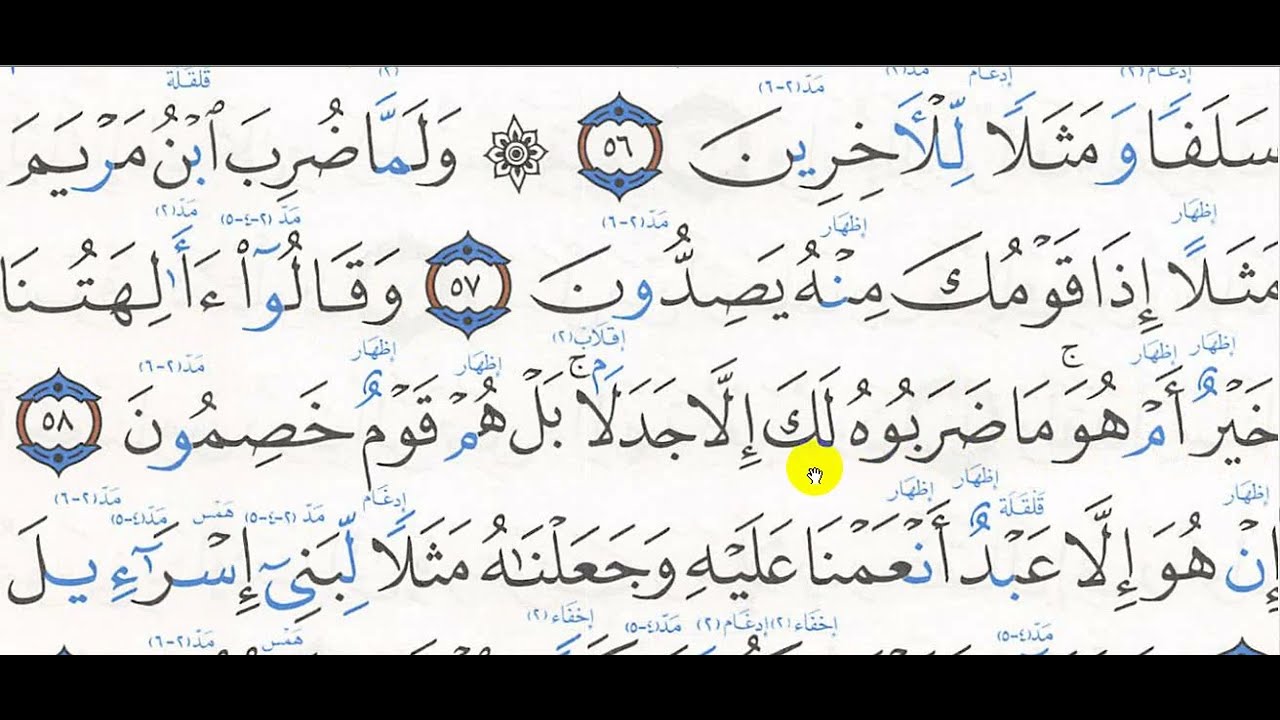 قلقلة إدغام مدّ(٢) إدغام(٢) مدّ(٢-٦) (٢)
سَلَفًا وَمَثَلًا لِّلْأَخِرِينَ ٥٦ ۞ وَلَمَّا ضُرِبَ ٱبْنُ مَرْيَمَ
إظهار إظهار مدّ(٢-٦) مدّ(٢-٤-٥) مدّ(٢)
مَثَلًا إِذَا قَوْمُكَ مِنْهُ يَصِدُّونَ ٥٧ وَقَالُوٓا۟ ءَأَٰلِهَتُنَا
إظهار إظهار إقلاب(٢) إظهار إظهار مدّ(٢-٦)
خَيْرٌ أَمْ هُوَ ۚ مَا ضَرَبُوهُ لَكَ إِلَّا جَدَلًۢا ۚ بَلْ هُمْ قَوْمٌ خَصِمُونَ ٥٨
إظهار قلقلة إظهار إظهار إدغام مدّ(٢-٤-٥) همس مدّ(٤-٥) مدّ(٢-٦)
إِنْ هُوَ إِلَّا عَبْدٌ أَنْعَمْنَا عَلَيْهِ وَجَعَلْنَٰهُ مَثَلًا لِّبَنِىٓ إِسْرَٰٓءِيلَ
مدّ(٤-٥) إخفاء(٢) إدغام(٢) مدّ(٤-٥) إخفاء(٢) همس مدّ(٢-٦)